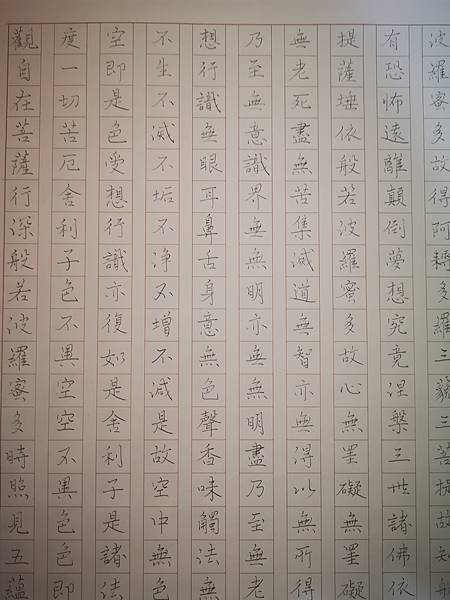 觀自在菩薩行深般若波羅蜜多時照見五蘊
度一切苦厄舍利子色不異空空不異色色即
空即是色受想行識亦復如是舍利子是諸法
不生不滅不垢不淨不增不減是故空中無色
想行識無眼耳鼻舌身意無色聲香味觸法無
乃至無意識界無無明亦無無明盡乃至無老
無老死盡無苦集滅道無智亦無得以無所得
提薩埵依般若波羅蜜多故心無罣礙無罣礙
有恐怖遠離顛倒夢想究竟涅槃三世諸佛依
波羅蜜多故得阿耨多羅三藐三菩提故知般